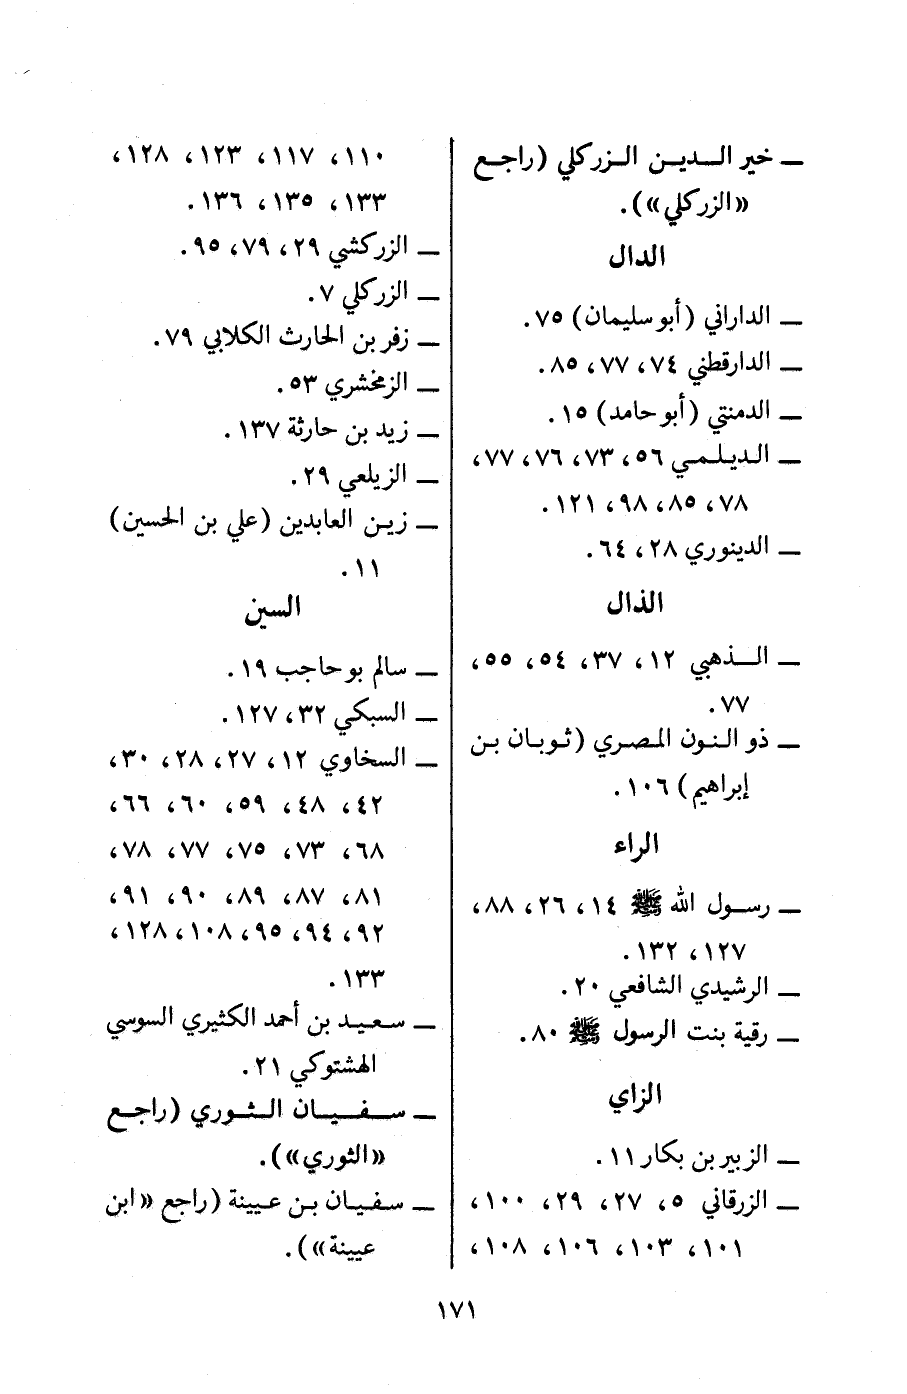 ــ خير الــديــن الــزركلي (راجــع
«الزركلي»).
الدال
ــ الداراني (أبو سليمان) ٧٥.
ــ الدارقطني ٧٤، ٧٧، ٨٥.
ــ الدمنتي (أبو حامد) ١٥.
ــ الـديـلـمـي ٥٦، ٧٣، ٧٦، ٧٧،
٧٨، ٨٥، ٩٨، ١٢١.
ــ الدينوري ٢٨، ٦٤.
الذال
ــ الــذهبي ١٢، ٣٧، ٥٤، ٥٥،
٧٧.
ــ ذو الـنـون المـصـري (ثـوبـان بـن
إبراهيم) ١٠٦.
الراء
ــ رسـول الله ﷺ ١٤، ٢٦، ٨٨،
١٢٧، ١٣٢.
ــ الرشيدي الشافعي ٢٠.
ــ رقية بنت الرسول ﷺ ٨٠.
الزاي
ــ الزبير بن بكار ١١.
ــ الزرقاني ٥، ٢٧، ٢٩، ١٠٠،
١٠١، ١٠٣، ١٠٦، ١٠٨،
١١٠، ١١٧، ١٢٣، ١٢٨،
١٣٣، ١٣٥، ١٣٦.
ــ الزركشي ٢٩، ٧٩، ٩٥.
ــ الزركلي ٧.
ــ زفر بن الحارث الكلابي ٧٩.
ــ الزمخشري ٥٣.
ــ زيد بن حارثة ١٣٧.
ــ الزيلعي ٢٩.
ــ زيـن العابدين (علي بن الحسين)
١١.
السين
ــ سالم بو حاجب ١٩.
ــ السبكي ٣٢، ١٢٧.
ــ السخاوي ١٢، ٢٧، ٢٨، ٣٠،
٤٢، ٤٨، ٥٩، ٦٠، ٦٦،
٦٨، ٧٣، ٧٥، ٧٧، ٧٨،
٨١، ٨٧، ٨٩، ٩٠، ٩١،
٩٢، ٩٤، ٩٥، ١٠٨، ١٢٨،
١٣٣.
ــ سـعـيـد بن أحمد الكثيري السوسي
الهشتوكي ٢١.
ــ ســفــيــان الــثــوري (راجــع
«الثوري»).
ــ سـفـيـان بـن عـيـينة (راجع «ابن
عيينة»).
١٧١